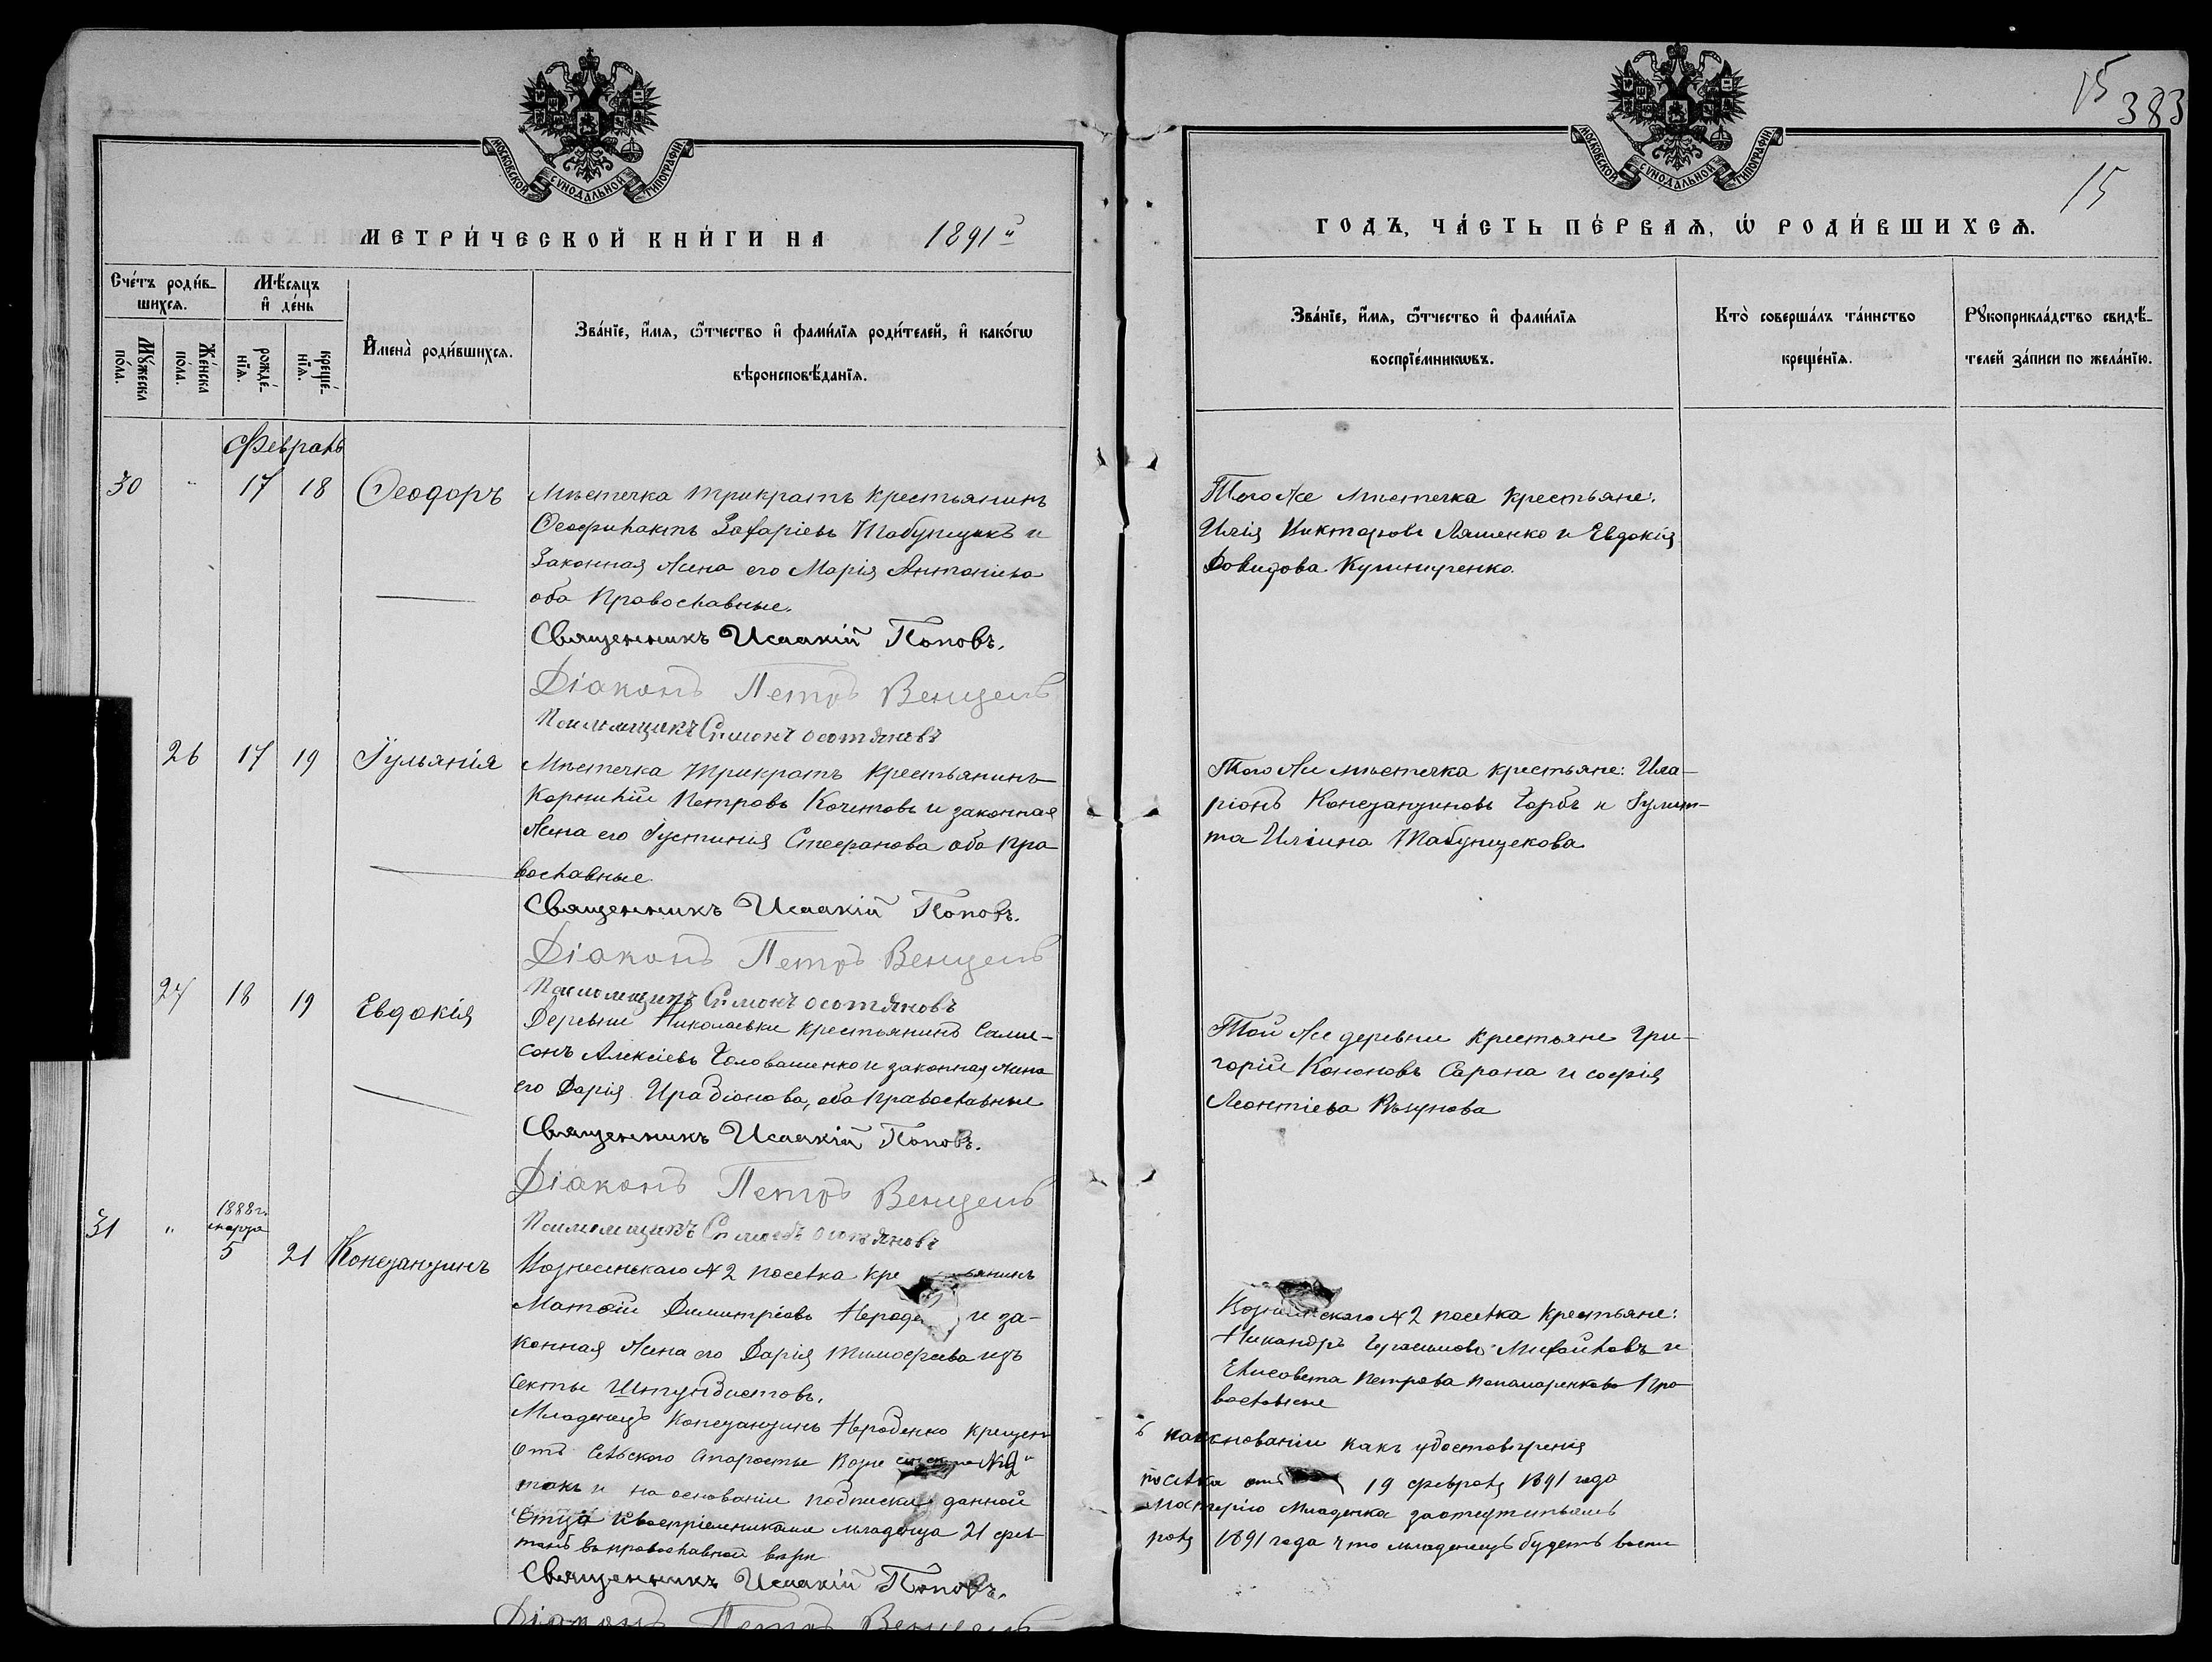 МОСКОВСКОЙ СѴНОДАЛЬНОЙ ТИПОГРАФІИ
МЕТРИ́ЧЕСКОЙ КНИ́ГИ НА 1891й
Сче́тъ роди́вшихсѧ.
Мѣ́сяцъ и҆ де́нь
Мꙋ́жеска по́ла.
Же́нска по́ла.
рожде́нїѧ.
креще́нїѧ.
И҆мена̀ роди́вшихсѧ.
Зва́нїе, и҆́мѧ, ѻ҆́тчество и҆ фами́лїѧ роди́телей, и҆ како́гѡ
вѣроисповѣ́данїѧ.
Февраль
30 " 17 18 Ѳеодоръ
Мѣстечка Трикратъ крестьянинъ
Ѳеофилактъ Захаріевъ Табунщикъ и
Законная жена его Марія Антоніева
оба Православные.
Священникъ Исаакій Поповъ.
Діаконъ Петръ Венцель
26 17 19 Іульянія
Мѣстечка Трикратъ крестьянинъ
Корнилій Петровъ Кочетовъ и законная
жена его Іустинія Стефанова оба пра
вославные
Священникъ Исаакій Поповъ.
Діаконъ Петръ Венцель
27 18 19 Евдокія
Деревни Николаевки крестьянинъ Сами-
сонъ Алексіевъ Головашенко и законная жена
его Дарія Ирадіонова, оба православные
Священникъ Исаакій Поповъ.
Діаконъ Петръ Венцель
31 " 1888 г. марта 5 21 Константинъ
Вознесенскаго №2 поселка кре янинъ
Матѳій Димитріевъ и за-
конная жена его Дарія Тимофеева изъ
секты Штундистовъ.
Младенецъ Констант��инъ Нероденко крещен
отъ Сельского старосты Возне №2й
такъ и на основаніи подписки данной
Отца и воспріемниками младенца 21 фев-
танъ въ православной вѣрѣ
Священникъ Исаакій Поповъ.
Діаконъ Петръ Венцель
15
383
15
МОСКОВСКОЙ СѴНОДАЛЬНОЙ ТИПОГРАФІИ
ГОДЪ, ЧА́СТЬ ПЕ́РВАѦ, Ѡ҆ РОДИ́ВШИХСѦ.
Зва́нїе, и҆́мѧ, ѻ҆́тчество и҆ фами́лїѧ
воспрїе́мникѡвъ.
Кто̀ соверша́лъ та́инство
креще́нїѧ.
Рꙋкоприкла́дство свидѣ́-
телей за́писи по жела́нїю.
Того же мѣстечка крестьяне:
Илія Викторовъ Ляшенко и Евдокія
Давидова Кулиниченко.
Того же мѣстечка крестьяне: Ила-
ріонъ Константиновъ Горбъ и Іулит-
та Иліина Табунщекова
Той же деревни крестьяне Гри-
горій Кононовъ Сарана и софія
Леонтіева
Вознесенскаго №2 поселка Крестьяне:
Никандръ Герасимовъ Михайловъ и
Елисавета Петрова Понамаренкова Пра
вославные
на основаніи какъ удостовѣренія
поселка отъ 19 февраля 1891 года
младенца
раля 1891 года что младенецъ будетъ воспи